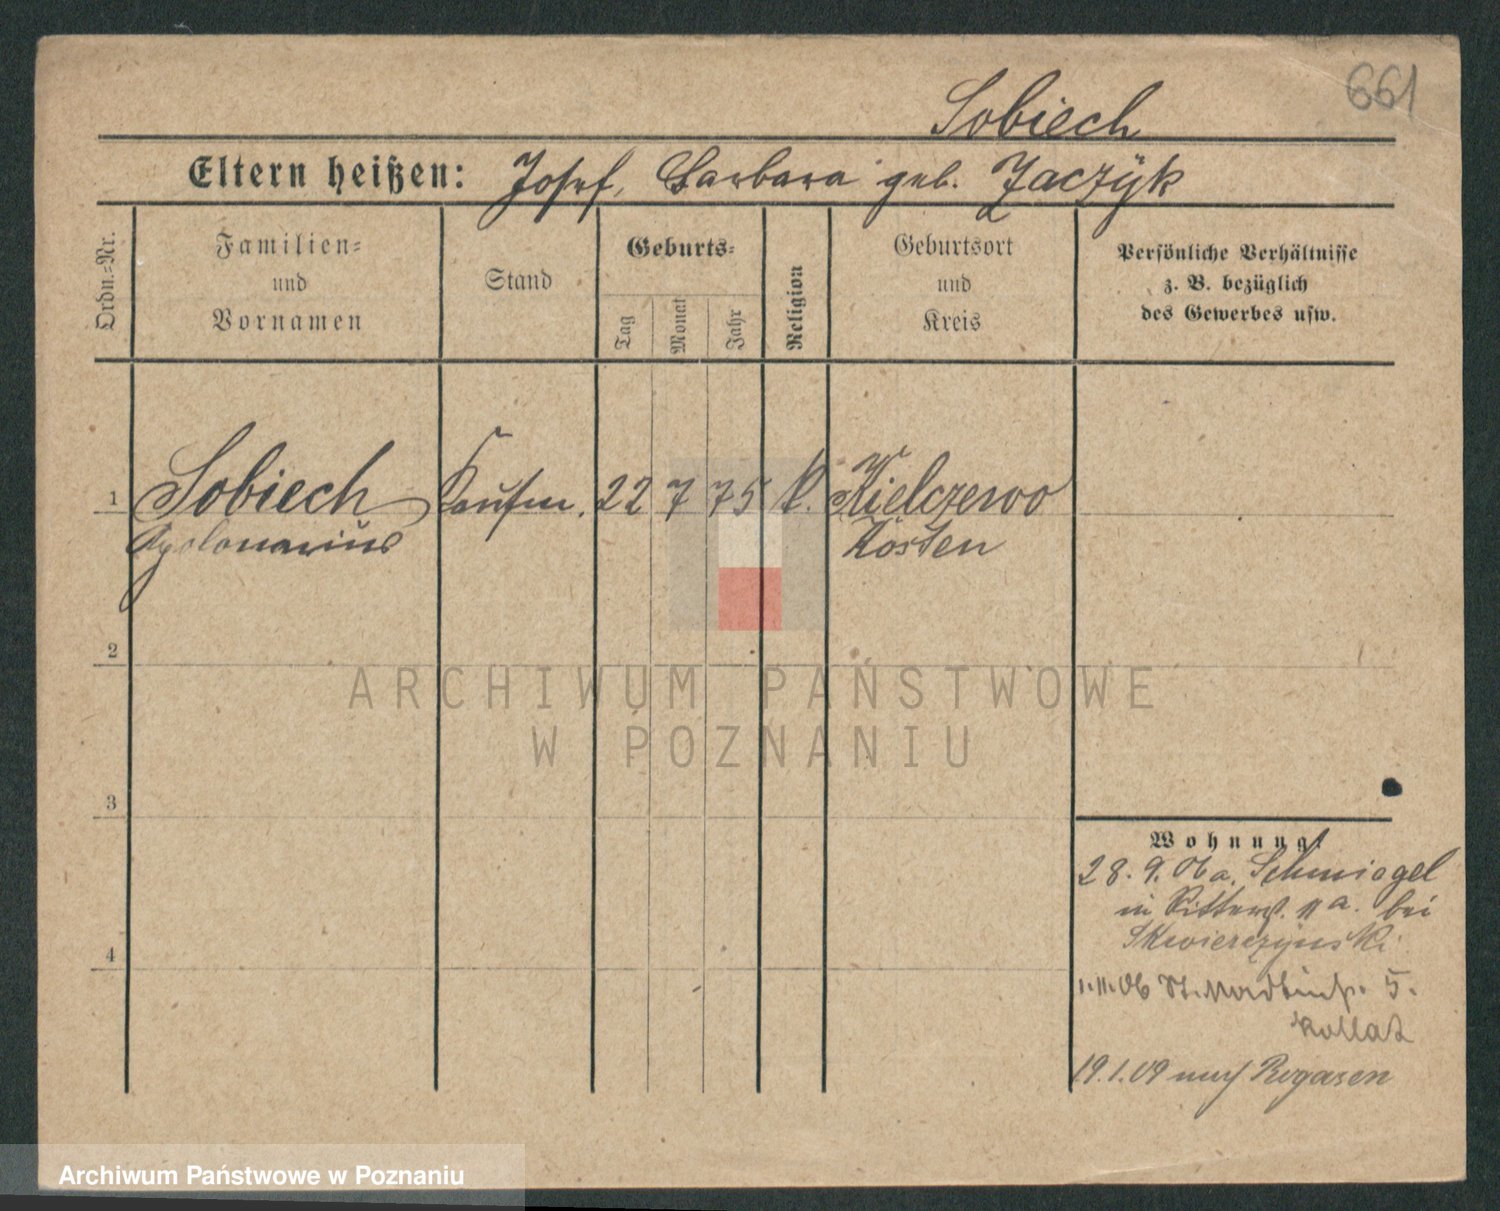 661
Sobiech
Eltern heißen: Josef, Barbara geb. Jaczÿk
Ordn.=Nr.
Familien=
und
Vornamen
Stand
Geburts=
Tag
Monat
Jahr
Religion
Geburtsort
und
Kreis
Persönliche Verhältnisse
z. B. bezüglich
des Gewerbes usw.
1 Sobiech Kaufm. 22 7 75 k. Kielczewo
Apolonarius Kosten
2
ARCHIWUM PAŃSTWOWE
W POZNANIU
3
Wohnung
28. 9. 06 a. Schmiegel
in Ritterst. 11 a. bei
Skwierczynski
1.11.06 St. 5.
Kollat
19.1.09 nach Rogasen
4
Archiwum Państwowe w Poznaniu